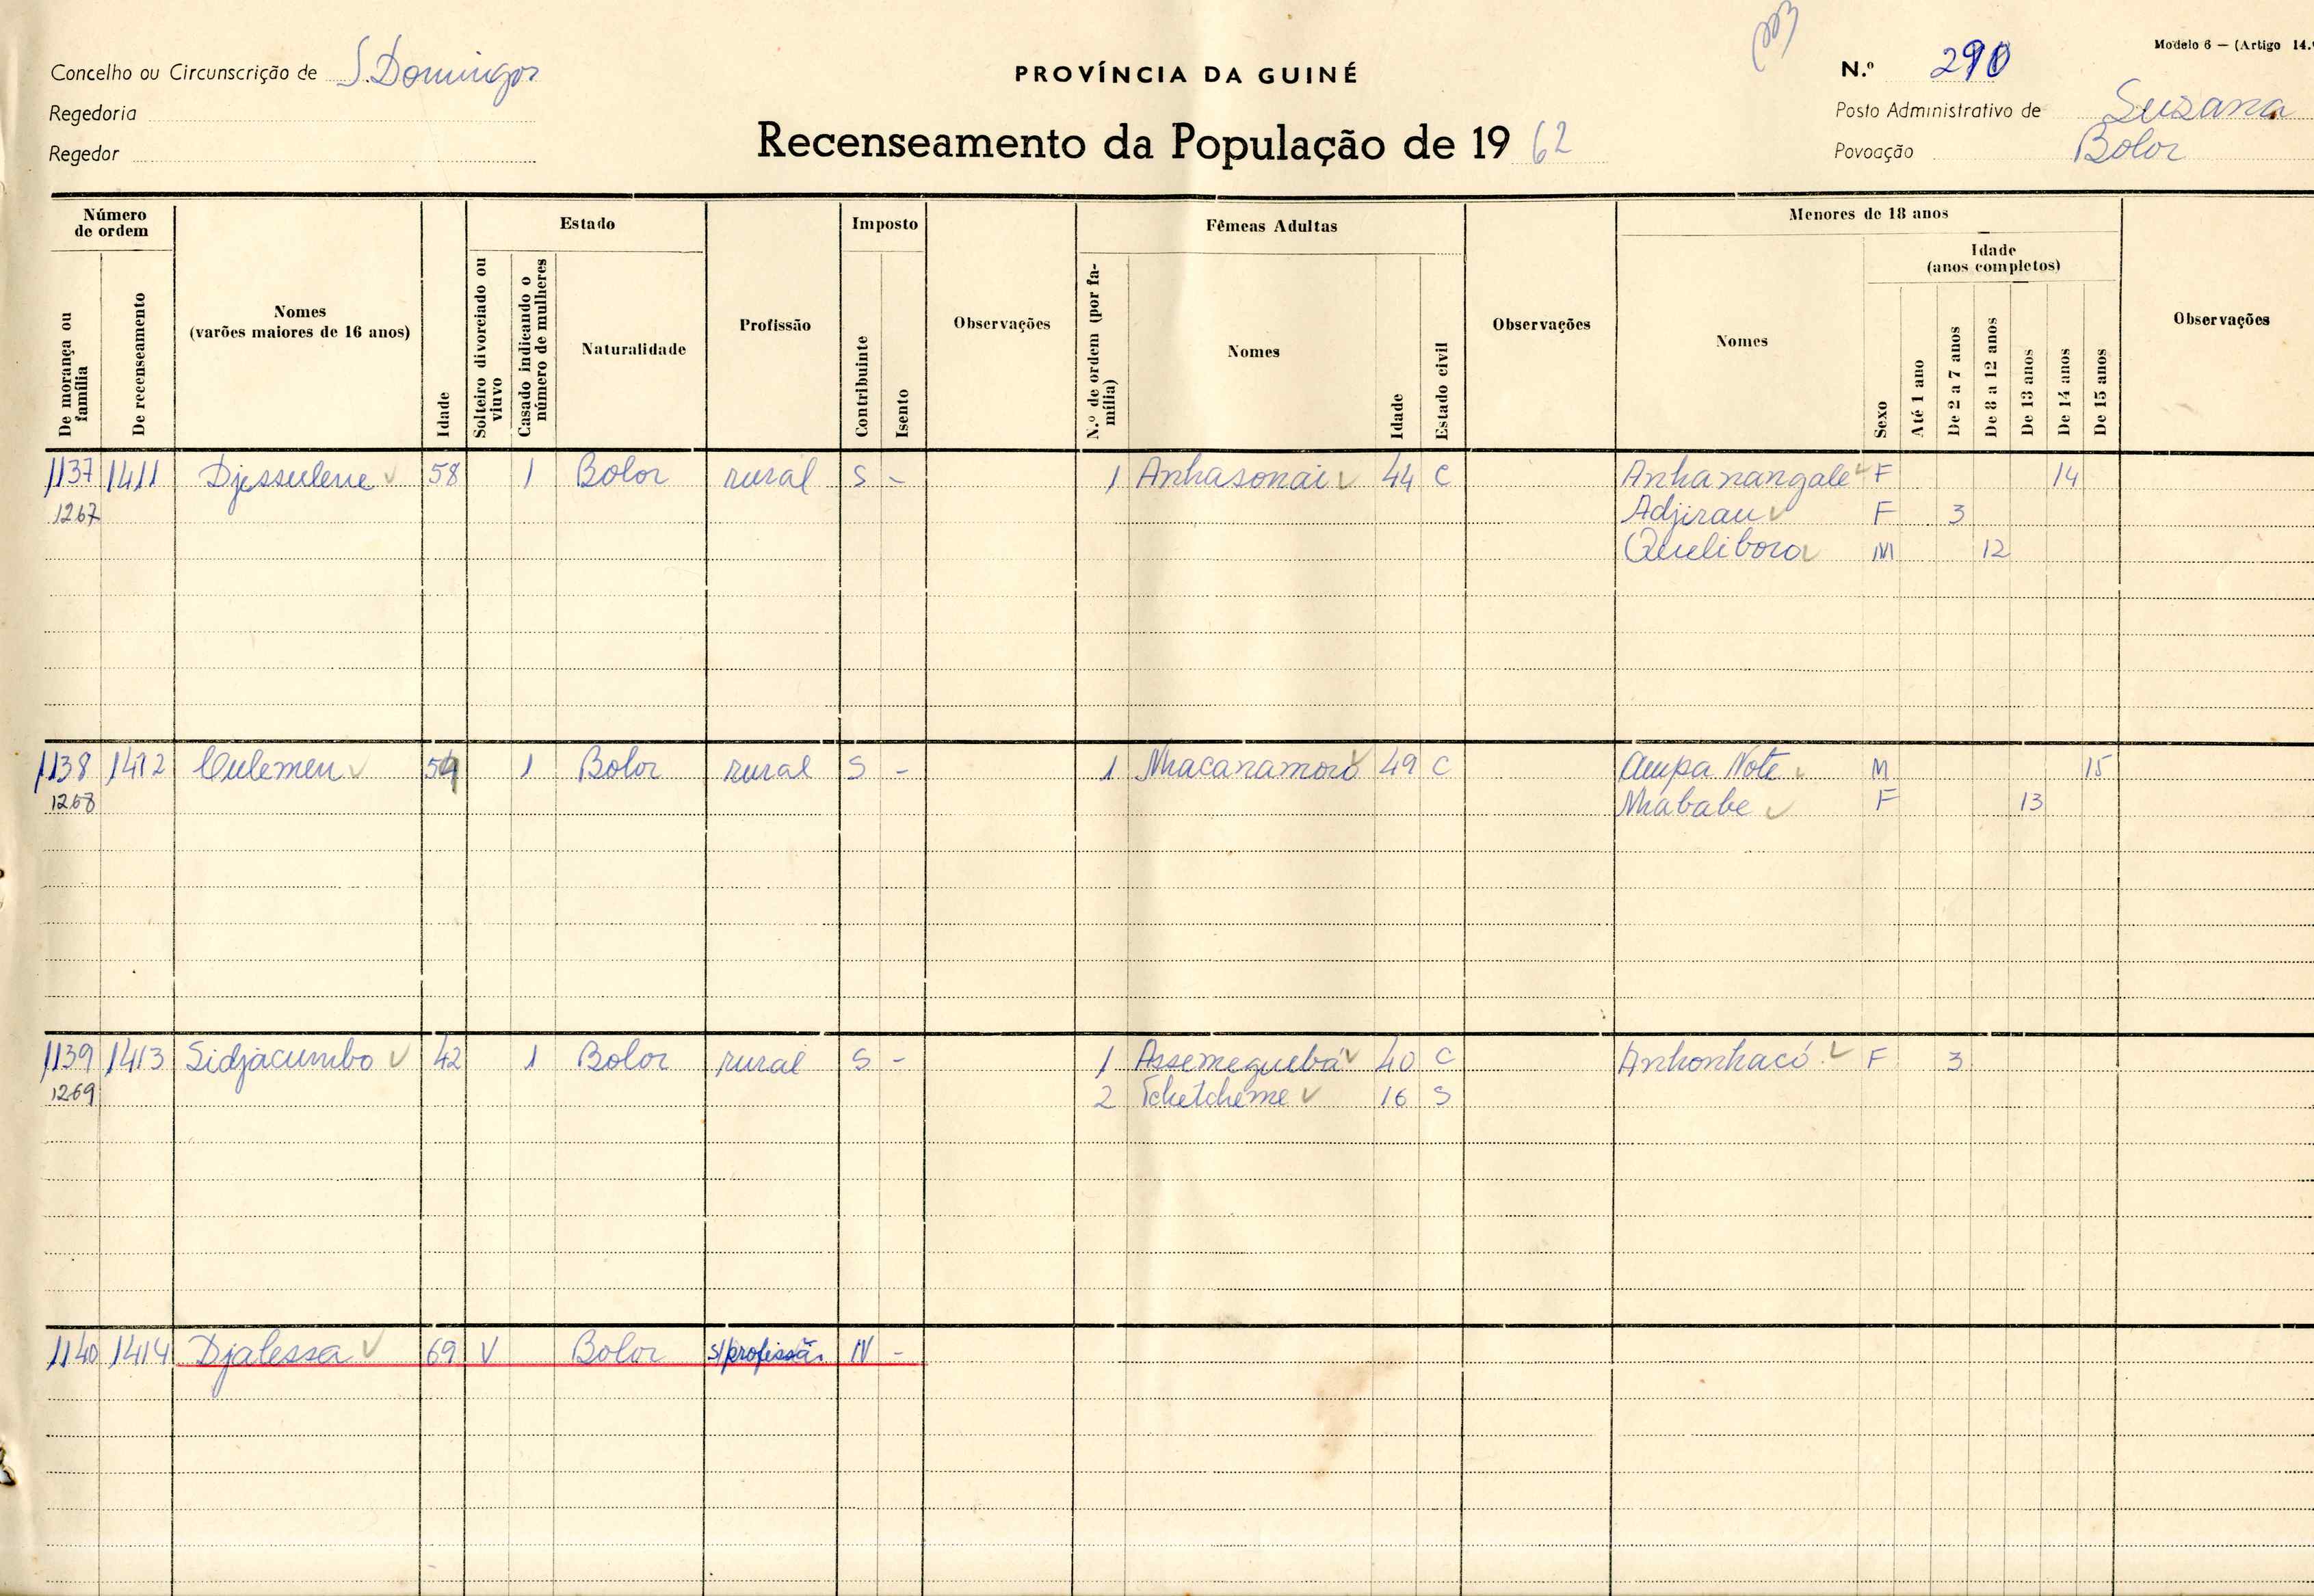 Modelo 6 — (Artigo 14.
Concelho ou Circunscrição de S. Domingos
PROVÍNCIA DA GUINÉ
N.º 290
Regedoria
Posto Administrativo de Suzana
Regedor
Recenseamento da População de 1962
Povoação Bolor
Número de ordem
De morança ou família
De recenseamento
Nomes (varões maiores de 16 anos)
Idade
Estado
Solteiro divorciado ou viuvo
Casado indicando o número de mulheres
Naturalidade
Profissão
Imposto
Contribuinte
Isento
Observações
Fêmeas Adultas
N.º de ordem (por família)
Nomes
Idade
Estado civil
Observações
Menores de 18 anos
Nomes
Sexo
Idade (anos completos)
Até 1 ano
De 2 a 7 anos
De 8 a 12 anos
De 13 anos
De 14 anos
De 15 anos
Observações
1137 1411 Djessulene 58 1 Bolor rural S - 1 Anhasonai 44 C Anhanangale F 14
1267 Adjirau F 3
Quelibora M 12
1138 1412 Culemen 1 Bolor rural S - 1 Nhacanamoró 49 C Ampa Note M 15
1268 Nhababe F 13
1139 1413 Sidjacumbo 42 1 Bolor rural S - 1 Assemeguebá 40 C Anhonhacó F 3
1269 2 Tchetcheme 16 S
1140 1414 Djalessa 69 V Bolor s/profissão N -